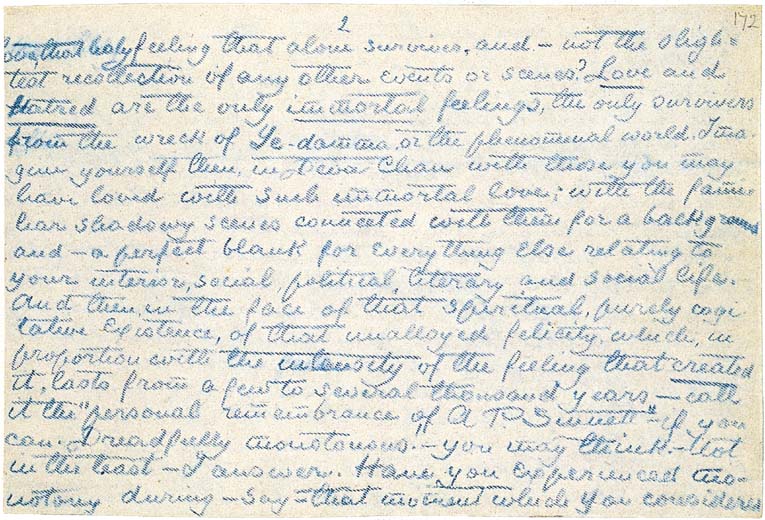 2
172
love, that holy feeling that alone survives, and — not the sligh=
test recollection of any other events or scenes? Love and
Hatred are the only immortal feelings, the only survivors
from the wreck of Ye-damma, or the phenomenal world. Ima-
gine yourself then, in Deva Chan with those you may
have loved with such immortal love; with the fami-
liar shadowy scenes connected with them for a background
and — a perfect blank for everything else relating to
your interior, social, political, literary and social life.
And then, in the face of that spiritual, purely cogi
tative existence, of that unalloyed felicity, which, in
proportion with the intensity of the feeling that created
it, lasts from a few to several thousand years — call
it the "personal remembrance of A P Sinnett" — if you
can. Dreadfully monotonous! — you may think. — Not
in the least — I answer. Have you experienced mo-
notony during — say — that moment which you considered